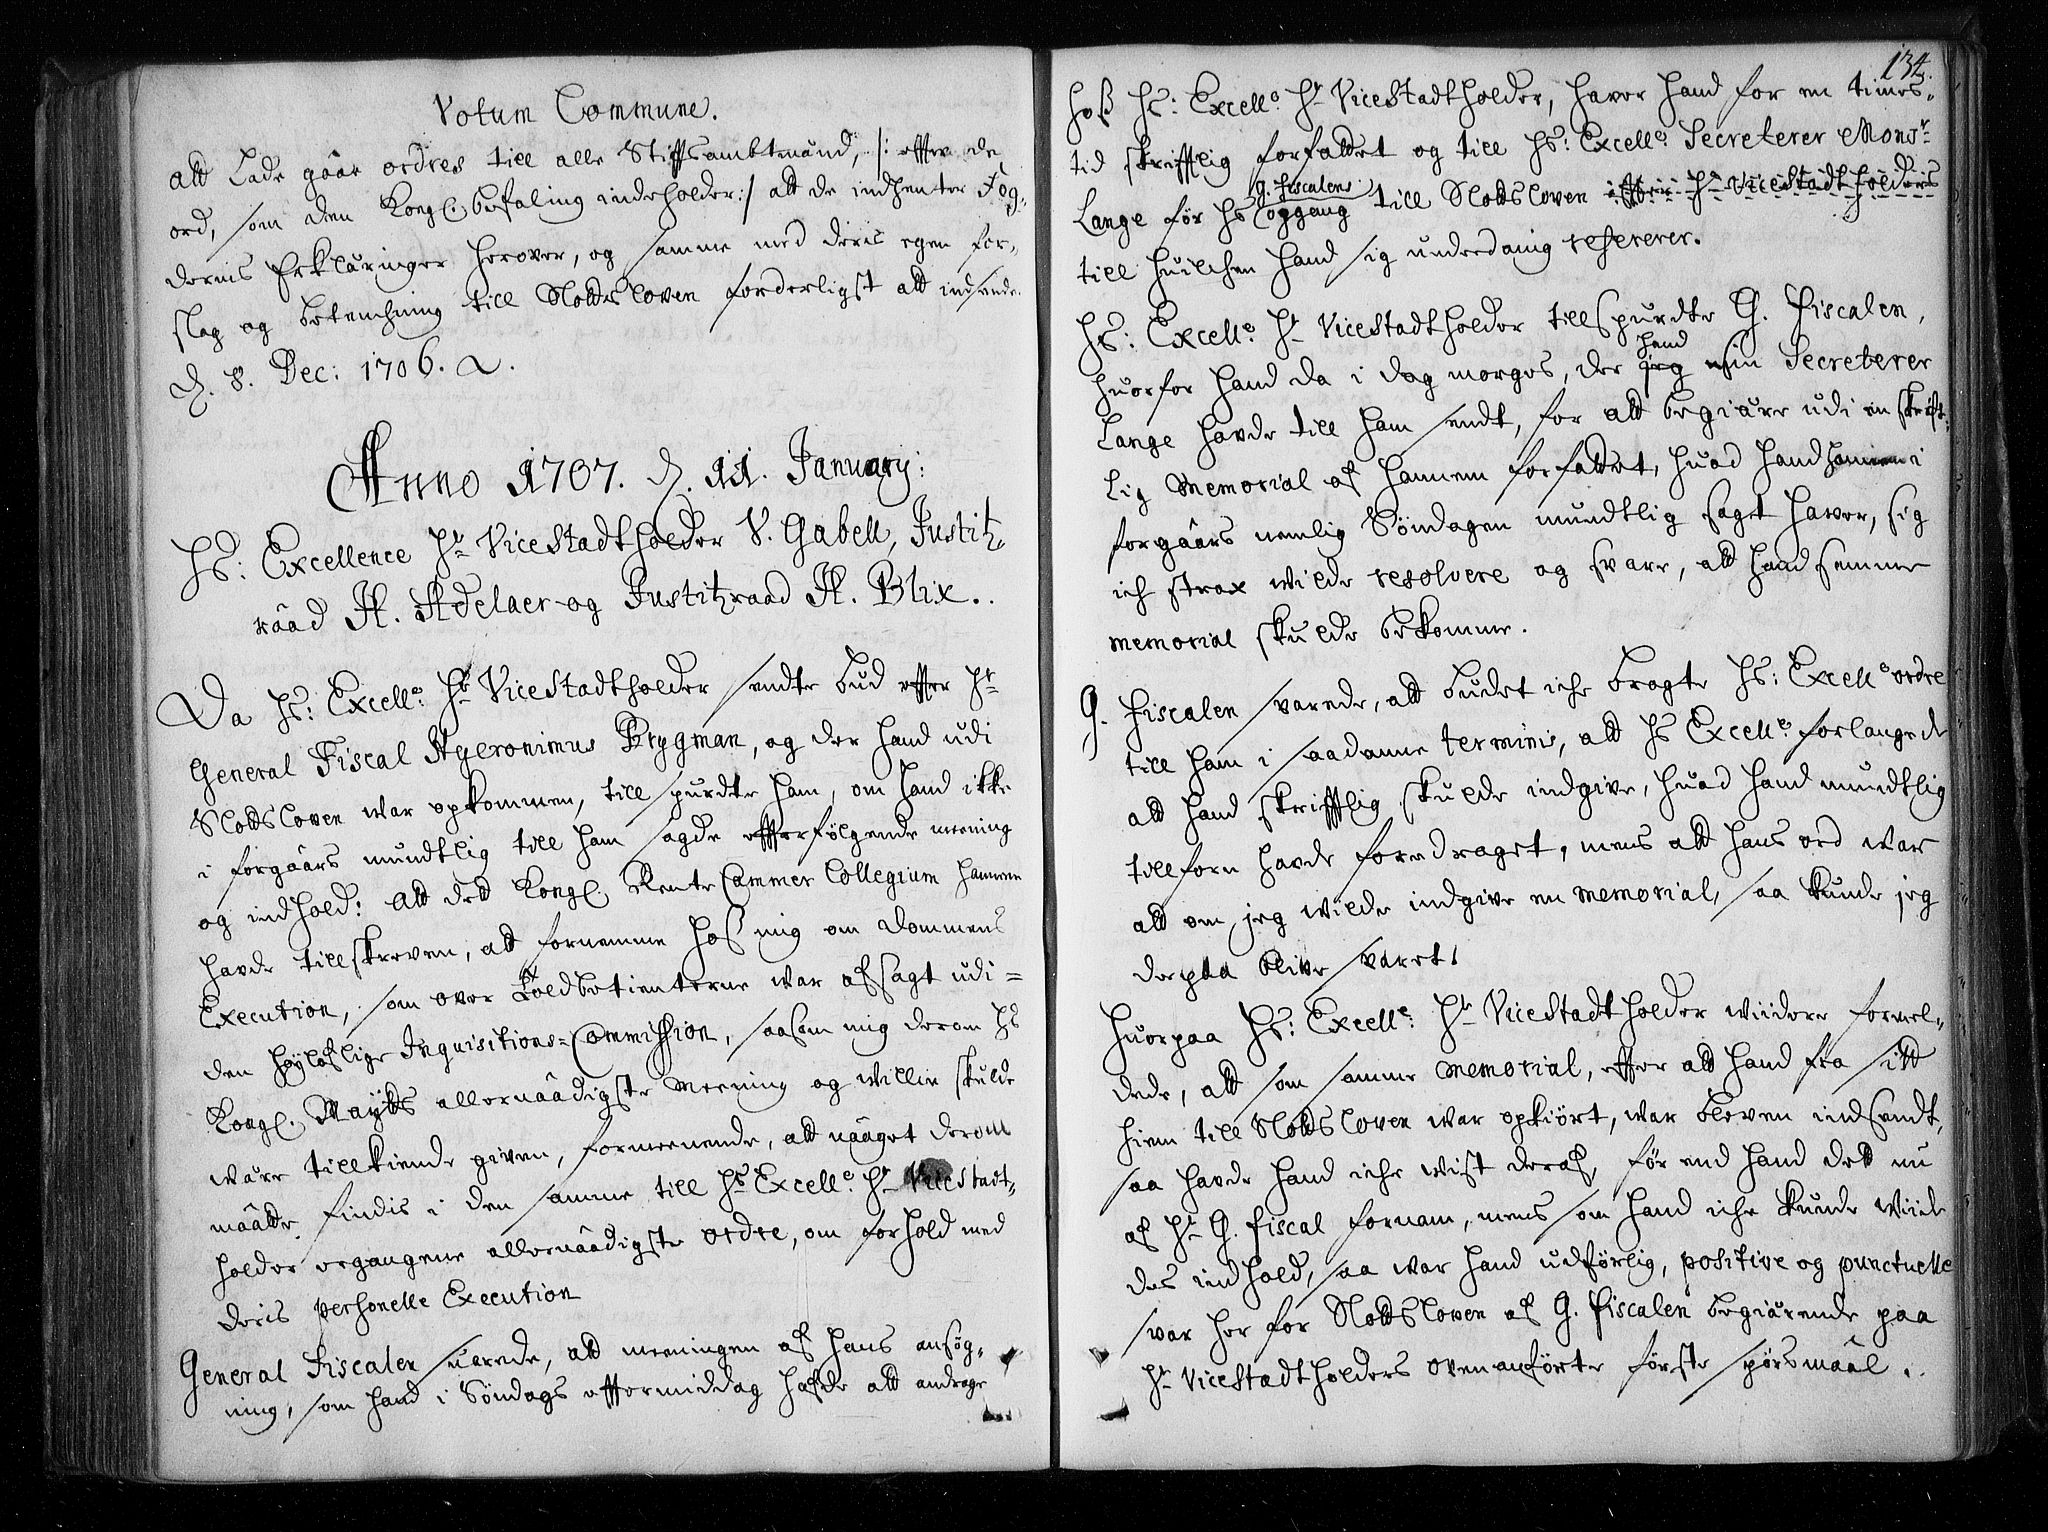 Votum Commune.
Att Lade gåår ordres till alle Stiffsambtmænd, /: effter de
ord, som den Kongl. befaling indeholder :/ att de indhenter Fog-
dernis Erklæringer herover, og samme med deris egen for-
slag og betenchning till Slotsloven forderligst att indsende.
d. 8. Dec: 1706.
Anno 1707. d. 11. January:
Hs: Excellence Hr Vicestadtholder V. Gabell, Justitz-
råad H. Adelaer og Justitzraad H. Blix.
Da Hs: Excell: Hr Vicestadtholder sendte bud effter Hr
General Fiscal Hyeronimus Brygman, og der hand udi
Slotsloven war opkommen, tillspurdte ham, om hand ikke
i forgåårs mundtlig till ham sagde effterfølgende meening
og indhold: att det Kongl. RenteCammer Collegium hannem
havde tillskreven, att fornemme hos mig om Dommens
Execution, som over Toldbetienterne war afsagt udi
den høyloflige Inquisitions-Commission, saasom mig derom Hs
Kongl. Mayts allernåådigste Meening og Willie skulde
være tillkiende given, formeenende, att nååget derom
måatte findis i den samme till Hs Excell: Hr Vicestadt-
holder ergangene allernåådigste ordre, om forhold med
deris personelle Execution
General Fiscalen suarede, att meeningen af hans ansøg-
ning, som hand i Søndags efftermiddag hafde att andrage
134.
hoß Hs: Excell: Hr Vicestadtholder, haver hand for en times-
tid skrifftlig forfattet og till Hs: Excell: Secreterer Monsr
Lange før Hs G. Fiscalens opgang till Slotsloven effter Hr Vicestadtholders
till huilchen hand sig underdanig refererer.
Hs: Excell: Hr Vicestadtholder tillspurdte G. Fiscalen,
huorfor hand da i dag morges, der jeg hand min Secreterer
Lange havde till ham sendt, for att begiære udi en skrift-
lig Memorial af hannem forfattet, huad hand hannem i
forgåårs nemlig Søndagen mundtlig sagt haver, sig
ich strax wilde resolvere og svare, att hand samme
memorial skulde bekomme.
G. Fiscalen svarede, att budet iche bragte Hs: Excell: ordre
till ham i saadanne terminis, att Hs Excell: forlangede
att hand skrifftlig skulde indgive, huad hand mundtlig
tillforn havde foredraget, mens att hans ord war
att om jeg wilde indgive en memorial, saa kunde jeg
derpaa blive svaret.
Huorpaa Hs: Excell: Hr Vicestadtholder widere formel-
dede, att som samme memorial, effter att hand fra sitt
hiem till Slotsloven war opkiørt, war bleven indsendt,
saa havde hand iche wist deraf, før end hand det nu
af Hr G. Fiscal fornam, mens som hand iche kunde wiide
des indhold, saa war hand udførlig, positive og punctuelle
svar her for Slotsloven af G. Fiscalen begiærende paa
Hr Vicestadtholders ovenanførte første spørsmåål.